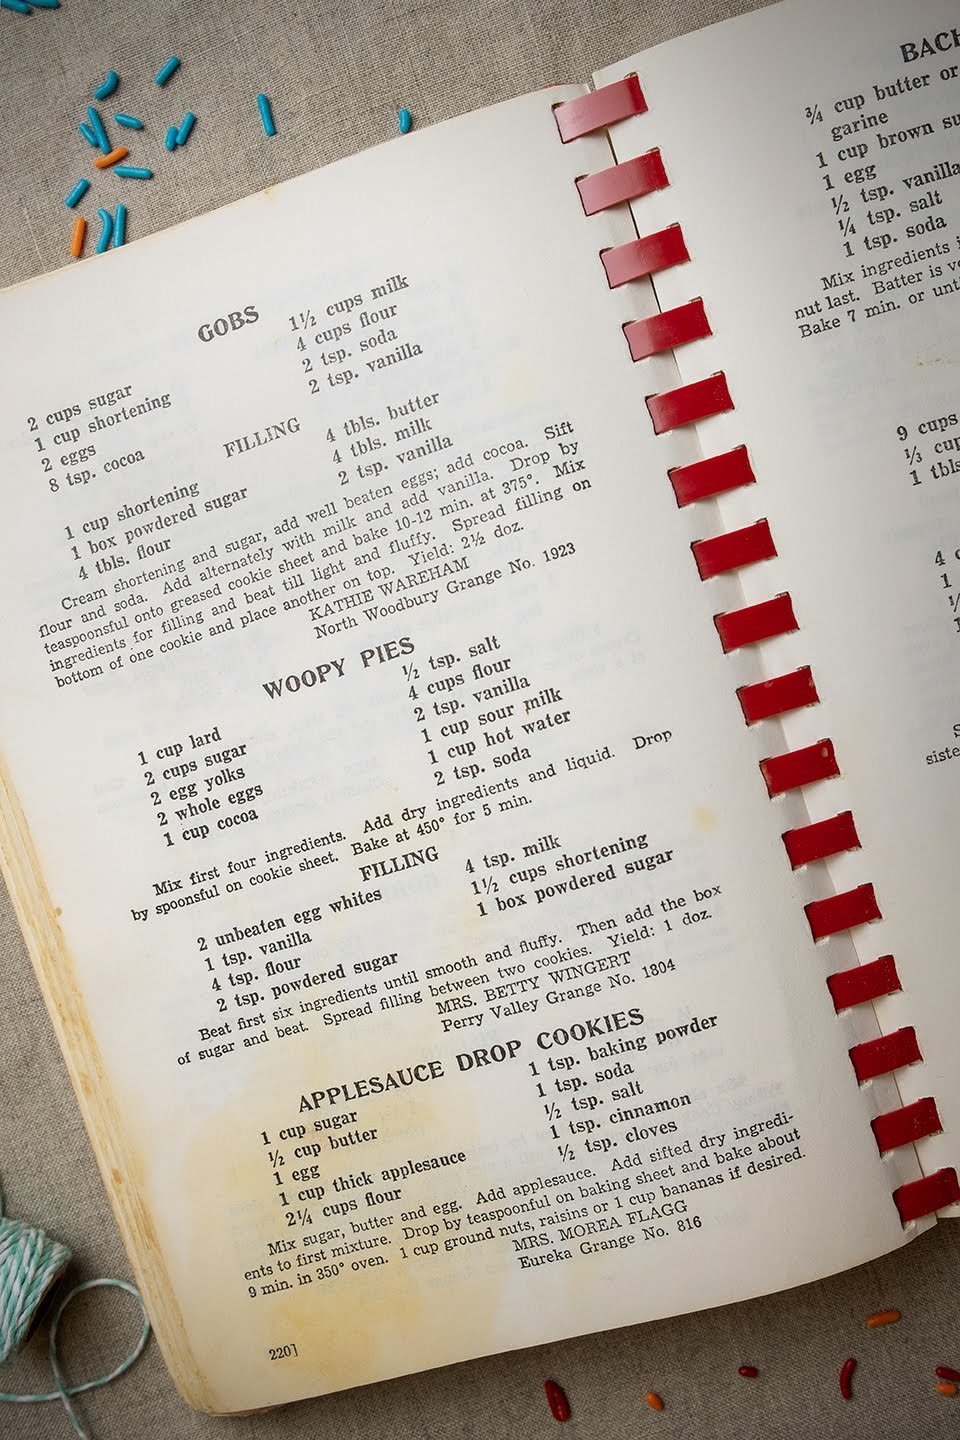 GOBS
2 cups sugar
1 cup shortening
2 eggs
8 tsp. cocoa
1½ cups milk
4 cups flour
2 tsp. soda
2 tsp. vanilla
FILLING
1 cup shortening
1 box powdered sugar
4 tbls. flour
4 tbls. butter
4 tbls. milk
2 tsp. vanilla
Cream shortening and sugar, add well beaten eggs; add cocoa. Sift
flour and soda. Add alternately with milk and add vanilla. Drop by
teaspoonsful onto greased cookie sheet and bake 10-12 min. at 375°. Mix
ingredients for filling and beat till light and fluffy. Spread filling on
bottom of one cookie and place another on top. Yield: 2½ doz.
KATHIE WAREHAM
North Woodbury Grange No. 1923
WOOPY PIES
1 cup lard
2 cups sugar
2 egg yolks
2 whole eggs
1 cup cocoa
½ tsp. salt
4 cups flour
2 tsp. vanilla
1 cup sour milk
1 cup hot water
2 tsp. soda
Mix first four ingredients. Add dry ingredients and liquid. Drop
by spoonsful on cookie sheet. Bake at 450° for 5 min.
FILLING
2 unbeaten egg whites
1 tsp. vanilla
4 tsp. flour
2 tsp. powdered sugar
4 tsp. milk
1½ cups shortening
1 box powdered sugar
Beat first six ingredients until smooth and fluffy. Then add the box
of sugar and beat. Spread filling between two cookies. Yield: 1 doz.
MRS. BETTY WINGERT
Perry Valley Grange No. 1804
APPLESAUCE DROP COOKIES
1 cup sugar
½ cup butter
1 egg
1 cup thick applesauce
2¼ cups flour
1 tsp. baking powder
1 tsp. soda
½ tsp. salt
1 tsp. cinnamon
½ tsp. cloves
Mix sugar, butter and egg. Add applesauce. Add sifted dry ingredi-
ents to first mixture. Drop by teaspoonful on baking sheet and bake about
9 min. in 350° oven. 1 cup ground nuts, raisins or 1 cup bananas if desired.
MRS. MOREA FLAGG
Eureka Grange No. 816
220]
¾ cup butter or
garine
1 cup brown
1 egg
½ tsp. vanilla
¼ tsp. salt
1 tsp. soda
Mix ingredients
nut last. Batter is
Bake 7 min. or
9 cups
⅓ cup
1
4
1
1